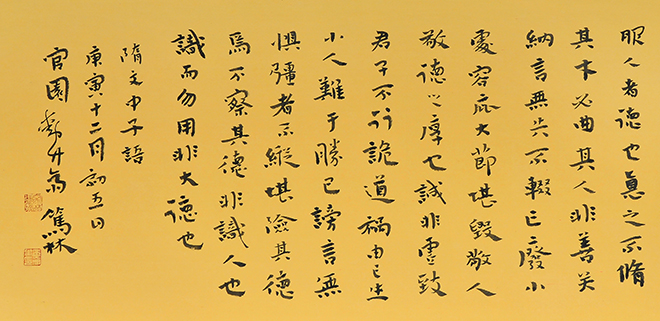 服人者德也惪之不脩
其才必曲其人非善矣
納言無失不輟亡廢小
處容疵大節堪毀敬人
敬德之厚也誠非虛致
君子不行詭道禍由己生
小人難于勝己謗言無
懼彊者不縱堪險其德
焉不察其德非識人也
識而勿用非大德也
隋文中子語
庚寅十二月初五日
官園 篤林